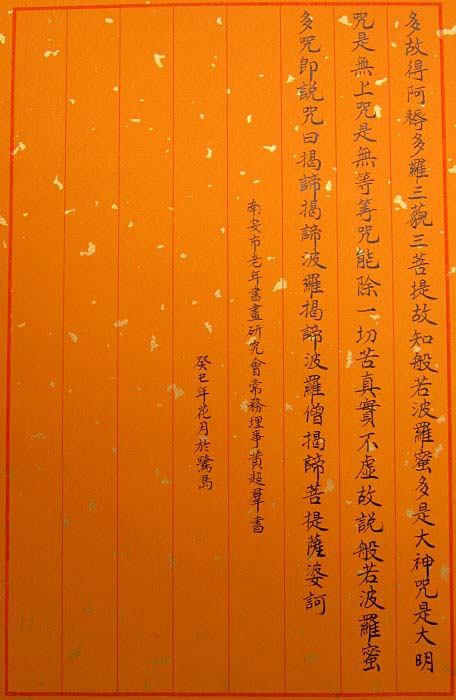 多故得阿耨多羅三藐三菩提故知般若波羅蜜多是大神咒是大明
咒是無上咒是無等等咒能除一切苦真實不虛故説般若波羅蜜
多咒即説咒曰揭諦揭諦波羅揭諦波羅僧揭諦菩提薩婆訶
南安市老年書畫研究會常務理事黄超羣書
癸巳年花月於鷺島